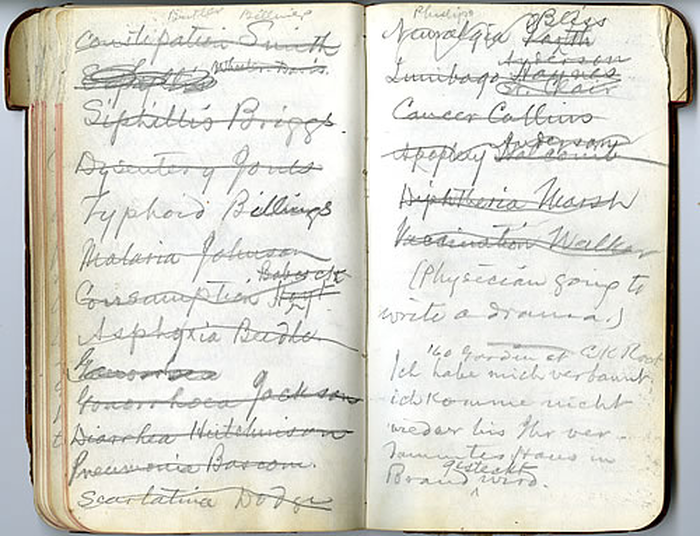 Butler Billings
Constipation Smith
Wheeler Davis
Siphillis Briggs.
Dysentery Jones
Typhoid Billings
Malaria Johnson
Babcock
Consumption Hoyt
Asphyxia Beadle
Gonorrhoea Jackson
Diarrhea Hutchinson
Pneumonia Bascom.
Scarlatina Dodge
Phillips Bliss
Neuralgia Faith
Anderson
Lumbago Haynes
St. Clair
Cancer Collins
Anderson
Apoplexy Holcomb
Diphtheria Marsh
Vaccination Walker
(Physician going to
write a drama.)
Ich habe mich verbannt,
ich komme nicht
wieder bis Ihr ver-
dammtes Haus in
gesteckt
Brand wird.